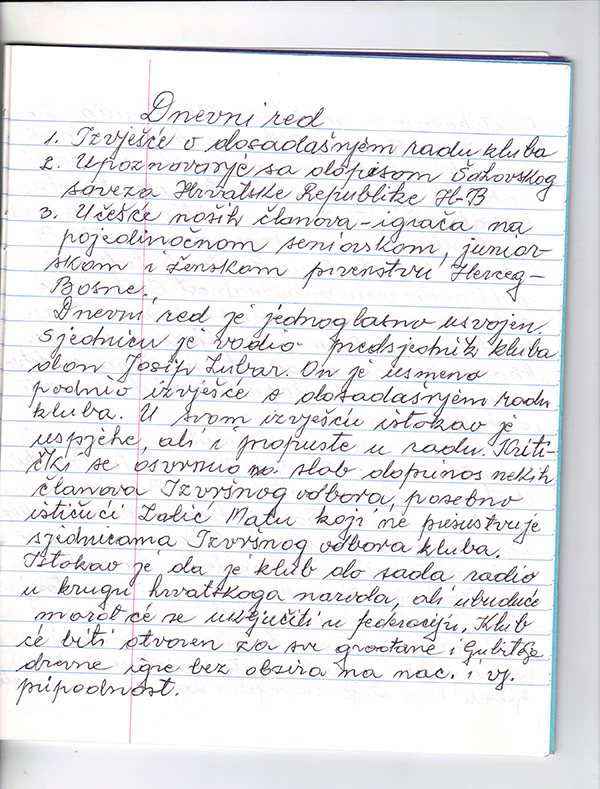 Dnevni red
1. Izvješće o dosadašnjem radu kluba
2. Upoznovanje sa dopisom Šahovskog
saveza Hrvatske Republike H-B
3. Učešće naših članova-igrača na
pojedinačnom seniorskom, junior-
skom i ženskom prvenstvu Herceg-
Bosne.
Dnevni red je jednoglasno usvojen
Sjednicu je vodio predsjednik kluba
don Josip Lubar. On je usmeno
podnio izvješće o dosadašnjem radu
kluba. U svom izvješću istakao je
uspjehe, ali i propuste u radu. Kriti-
čki se osvrnuo na slab doprinos nekih
članova Izvršnog odbora, posebno
ističući Lalić Matu koji ne prisustvuje
sjednicama Izvršnog odbora kluba.
Istakao je da je klub do sada radio
u krugu hrvatskoga naroda, ali ubuduće
morat će se uključiti u federaciju. Klub
će biti otvoren za sve građane i ljubitelje
drevne igre bez obzira na nac. i vj.
pripadnost.